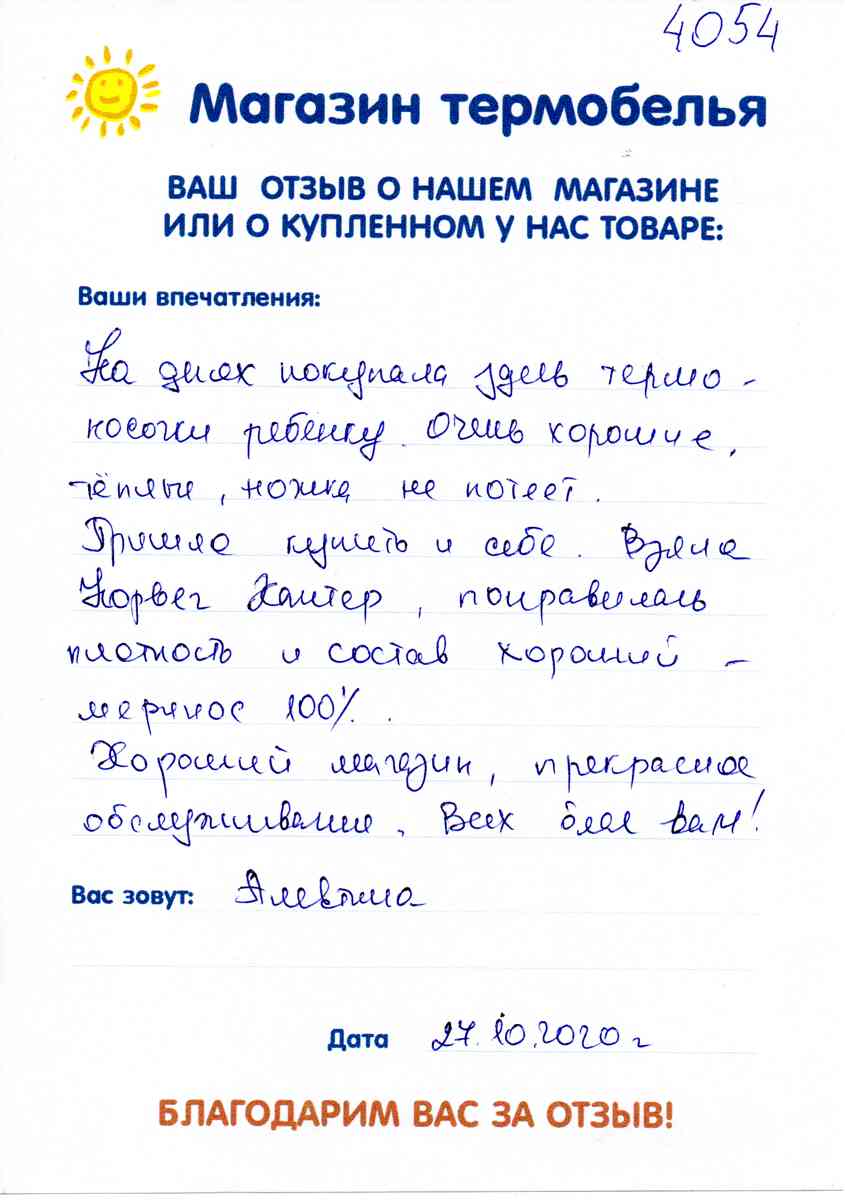 4054
Магазин термобелья
ВАШ ОТЗЫВ О НАШЕМ МАГАЗИНЕ
ИЛИ О КУПЛЕННОМ У НАС ТОВАРЕ:
Ваши впечатления:
На днях покупала здесь термо-
носочки ребенку. Очень хорошие,
тёплые, ножка не потеет.
Пришла купить и себе. Взяла
Норвег Хантер, понравилась
плотность и состав хороший -
меринос 100%.
Хороший магазин, прекрасное
обслуживание. Всех благ вам!
Вас зовут: Алевтина
Дата 27.10.2020 г
БЛАГОДАРИМ ВАС ЗА ОТЗЫВ!